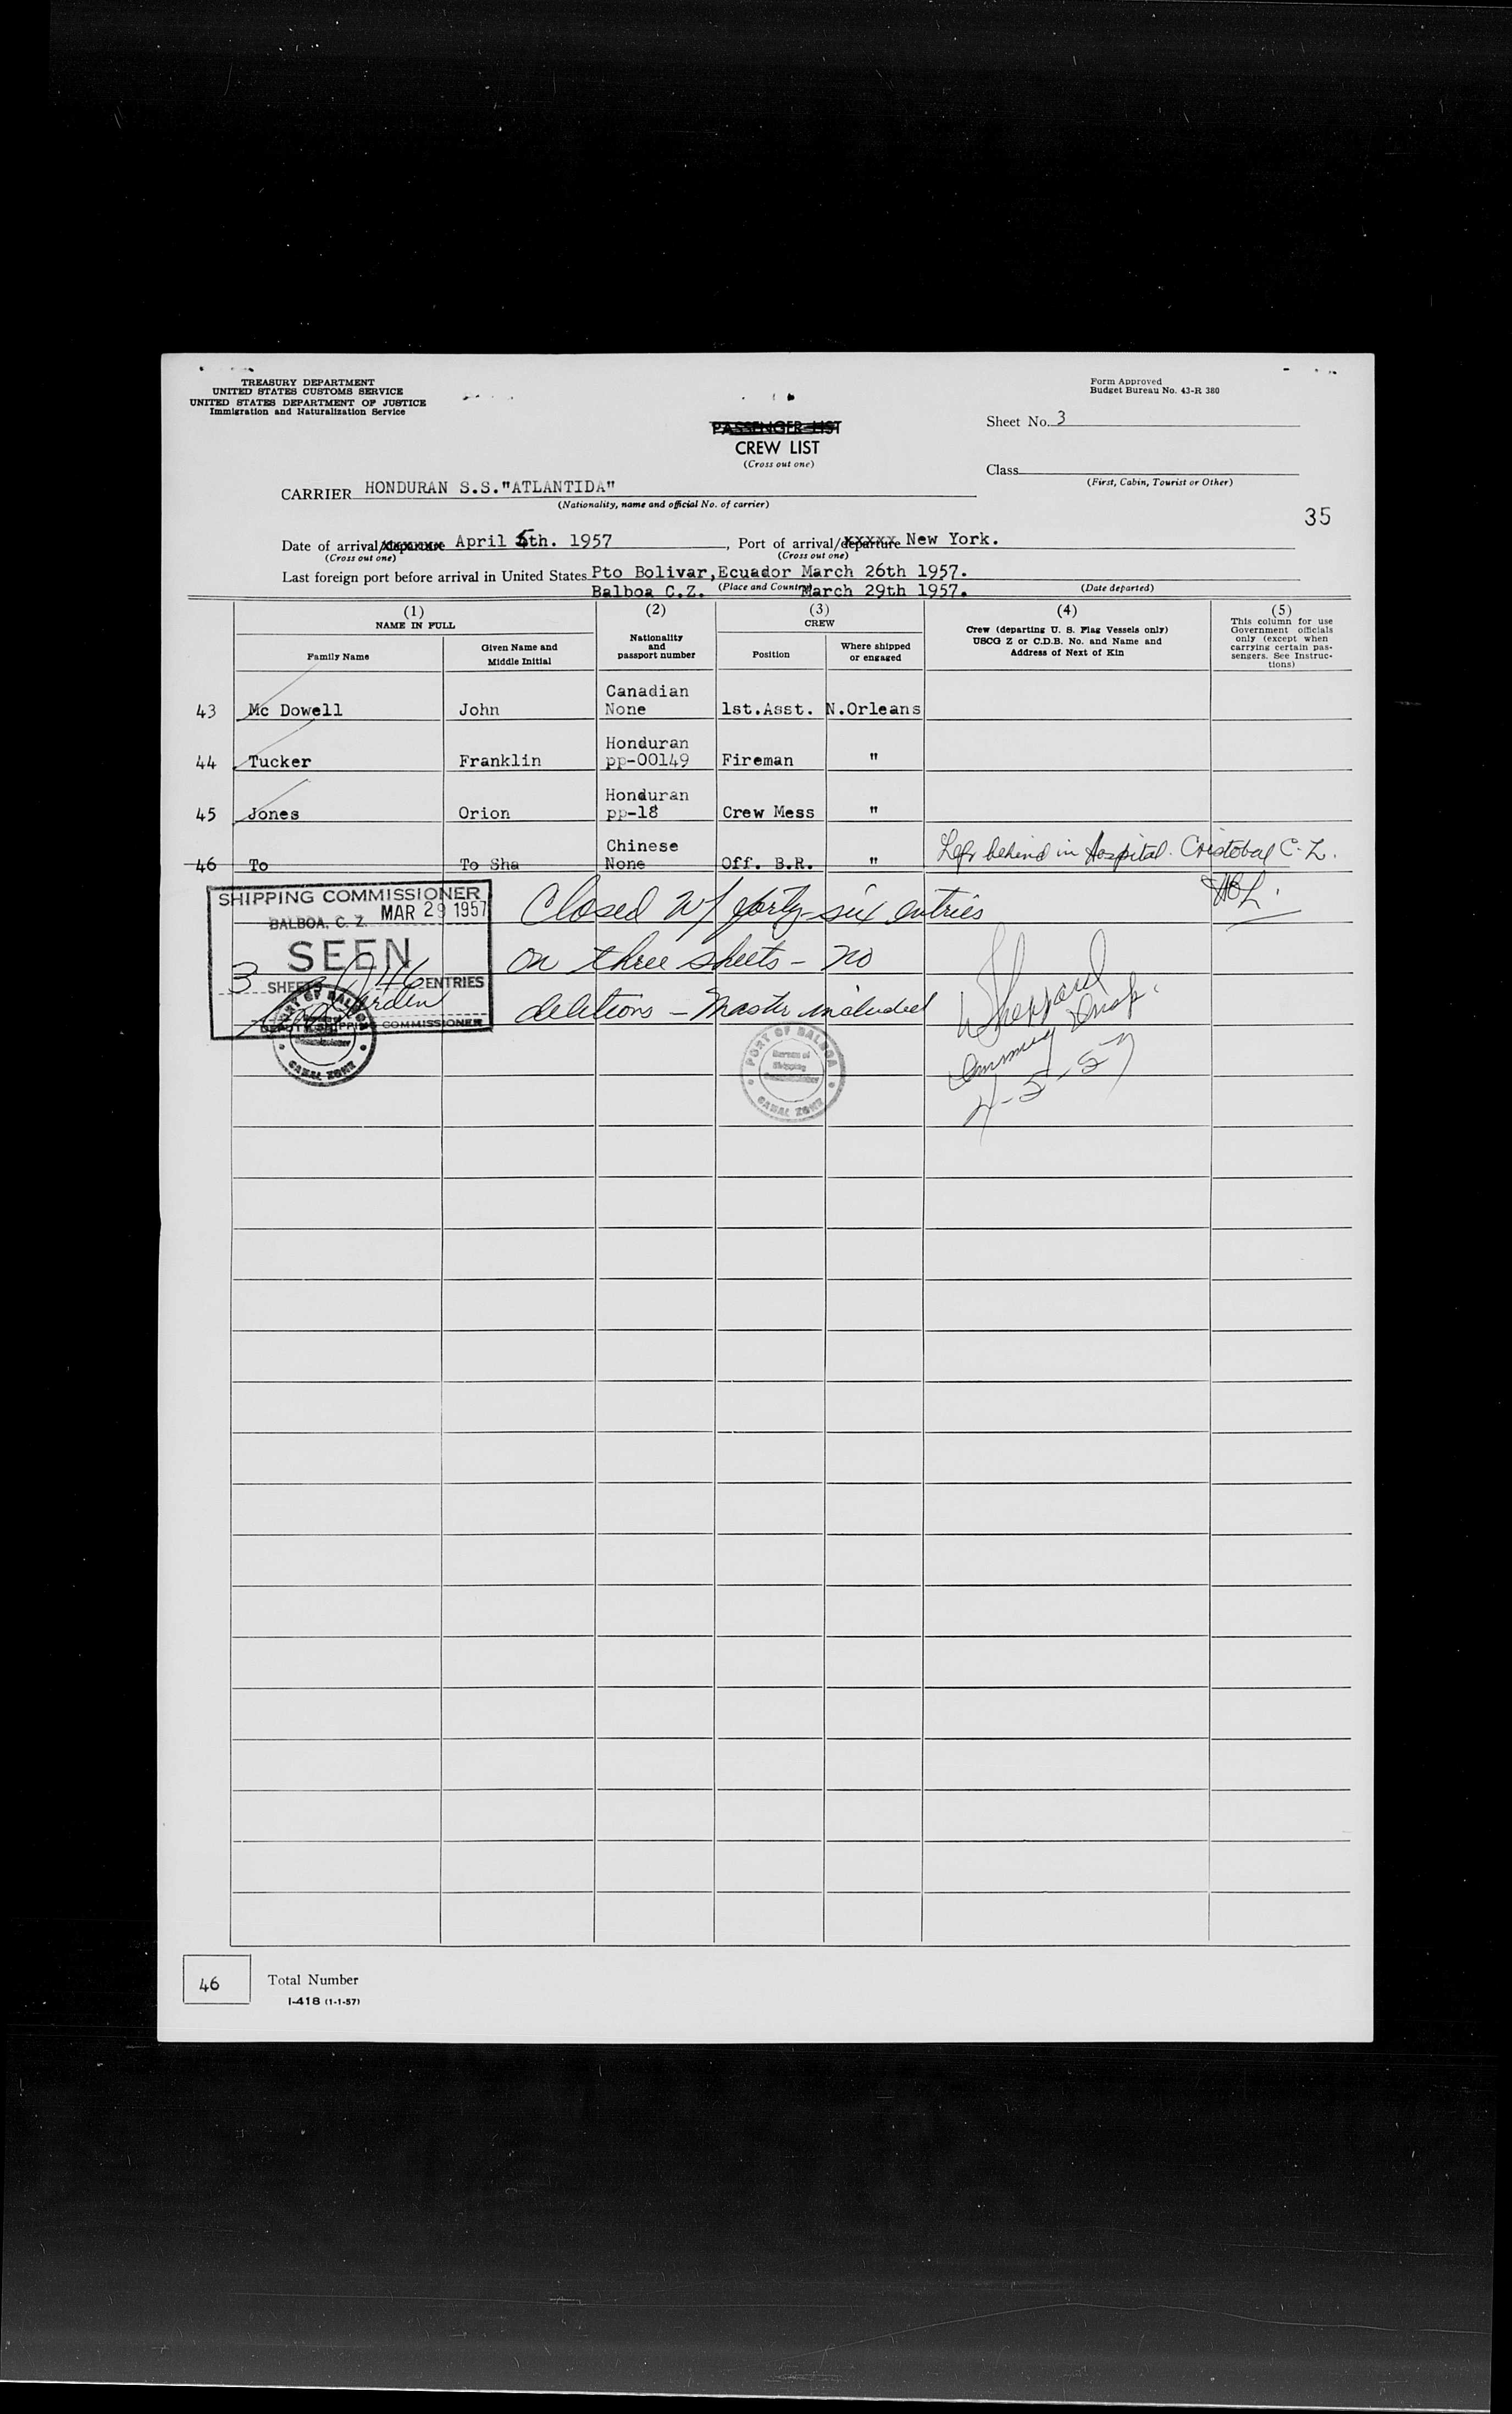 TREASURY DEPARTMENT
UNITED STATES CUSTOMS SERVICE
UNITED STATES DEPARTMENT OF JUSTICE
Immigration and Naturalization Service
Form Approved
Budget Bureau No. 43-R 380
PASSENGER LIST
CREW LIST
(Cross out one)
Sheet No. 3
Class
(First, Cabin, Tourist or Other)
CARRIER HONDURAN S.S."ATLANTIDA"
(Nationality, name and official No. of carrier)
35
Date of arrival/departure April 5th. 1957, Port of arrival/departure New York.
(Cross out one) (Cross out one)
Last foreign port before arrival in United States Pto Bolivar,Ecuador March 26th 1957.
Balboa C.Z. (Place and Country) March 29th 1957. (Date departed)
(1) (2) (3) (4) (5)
NAME IN FULL
Family Name
Given Name and Middle Initial
Nationality and passport number
CREW
Position
Where shipped or engaged
Crew (departing U. S. Flag Vessels only)
USCG Z or C.D.B. No. and Name and
Address of Next of Kin
This column for use
Government officials
only (except when
carrying certain pas-
sengers. See Instruc-
tions)
Canadian
43 Mc Dowell John None 1st.Asst. N.Orleans
Honduran
44 Tucker Franklin pp-00149 Fireman "
Honduran
45 Jones Orion pp-18 Crew Mess "
Chinese
46 To To Sha None Off. B.R. " Left behind in Hospital. Cristobal C.Z.
SHIPPING COMMISSIONER
BALBOA, C. Z. MAR 29 1957
SEEN
3 SHEETS 46 ENTRIES
DEPUTY SHIPPING COMMISSIONER
PORT OF BALBOA
CANAL ZONE
Closed w/ forty-six entries
on three sheets - no
deletions - Master included
W Sheppard
Immig Insp.
4-5-57
PORT OF BALBOA
Bureau of
Shipping
Commissioner
CANAL ZONE
46 Total Number
I-418 (1-1-57)